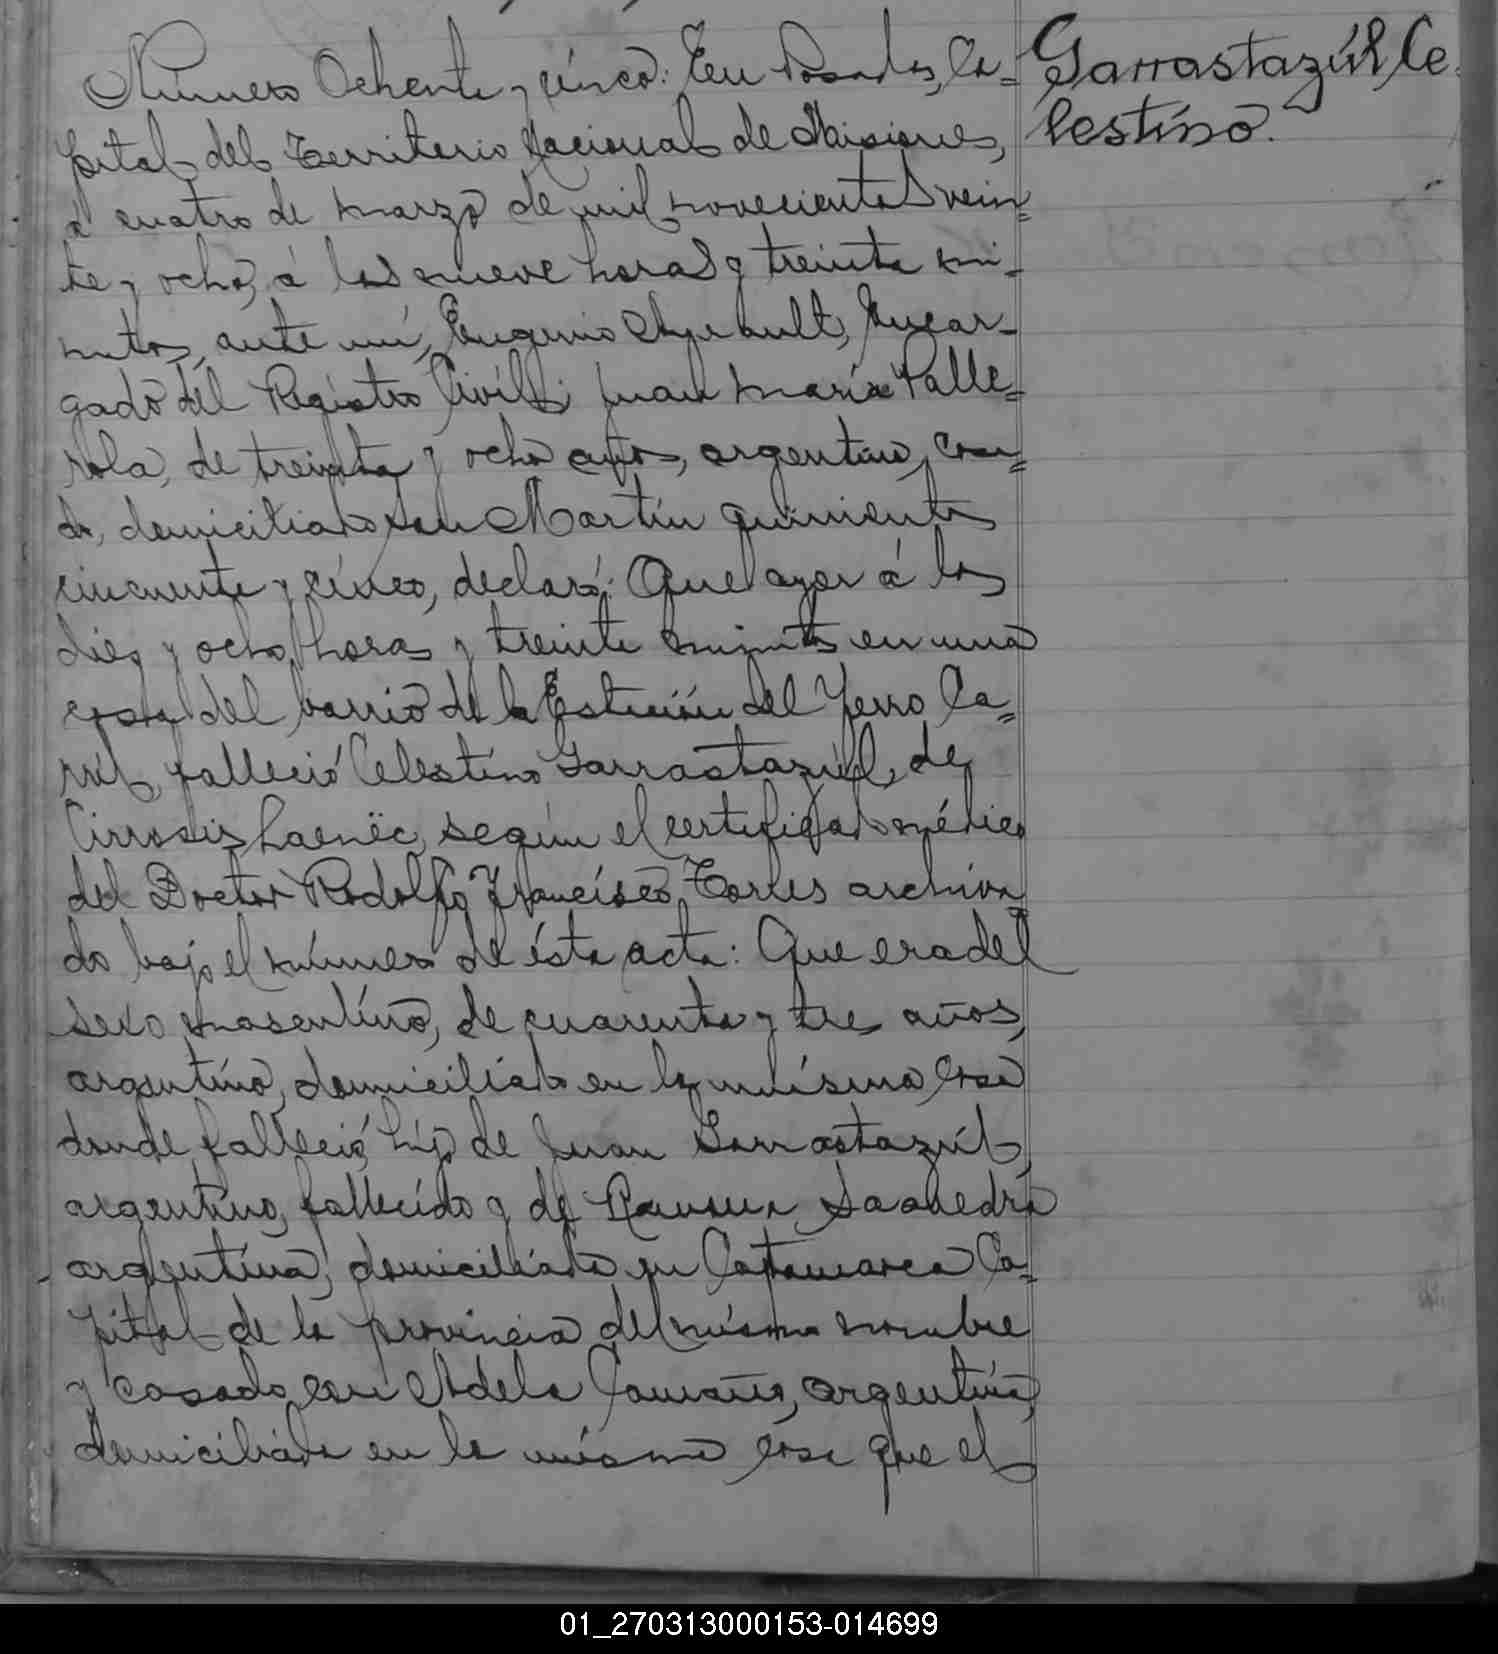 Garrastazúl Ce-
lestino.
Número Ochenta y cinco: En Posadas, Ca=
pital del Territorio Nacional de Misiones,
á cuatro de marzo de mil novecientos vein=
te y ocho, á las nueve horas y treinta mi-
nutos, ante mí, Eugenio Ayrault, Encar-
gado del Registro Civil; Juan María Palle=
rola, de treinta y ocho años, argentino, casa=
do, domiciliado San Martín quinientos
cincuenta y cinco, declaró: Que ayer á las
diez y ocho horas y treinta minutos en una
casa del barrio de la Estación del Ferro Ca=
rril, falleció Celestino Garrastazúl, de
Cirrosis Laenëc, según el certificado médico
del Doctor Rodolfo Francisco Torres archiva
do bajo el número de ésta acta: Que era del
sexo masculino, de cuarenta y tres años,
argentino, domiciliado en la misma casa
donde falleció, hijo de Juan Garrastazúl,
argentino, fallecido y de Saavedra
argentina, domiciliada en Catamarca Ca=
pital de la provincia del mismo nombre
y casado con Adela Camaño, argentina,
domiciliada en la misma casa que el
01_270313000153-014699